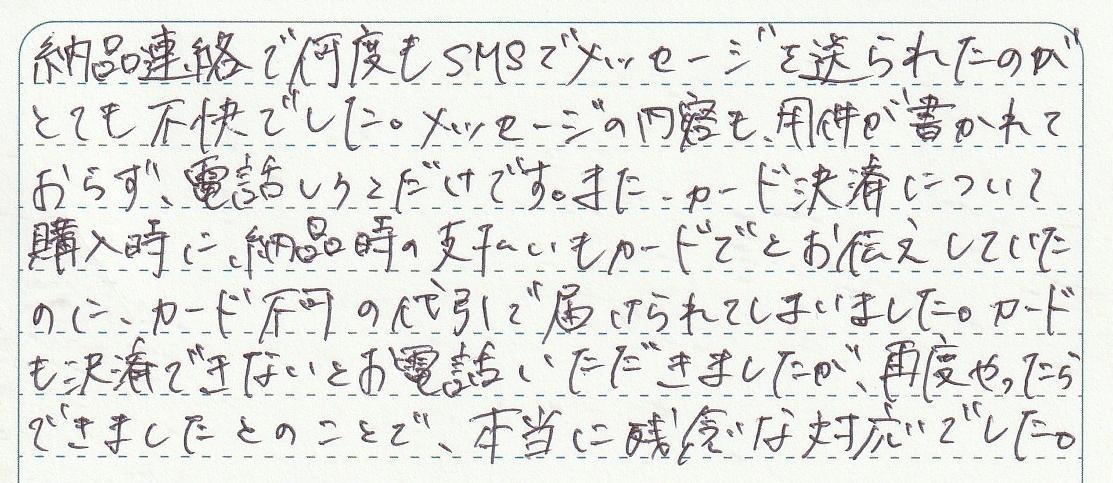 納品連絡で何度もSMSでメッセージを送られたのが
とても不快でした。メッセージの内容も、用件が書かれて
おらず、電話しろとだけです。また、カード決済について
購入時に、納品時の支払いもカードでとお伝えしていた
のに、カード不可の代引で届けられてしまいました。カード
も決済できないとお電話いただきましたが、再度やったら
できましたとのことで、本当に残念な対応でした。